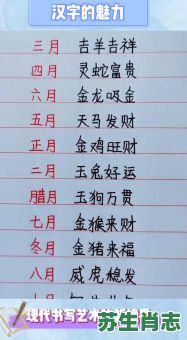 汉字的魅力
三月 吉羊吉祥
四月 灵蛇富贵
六月 金龙吸金
五月 天马发财
正月 金鸡旺财
二月 玉兔好运
腊月 玉狗万贯
七月 金猴来财
冬月 金猪来福
八月 威虎稳发
现代书写艺术
苏生肖志